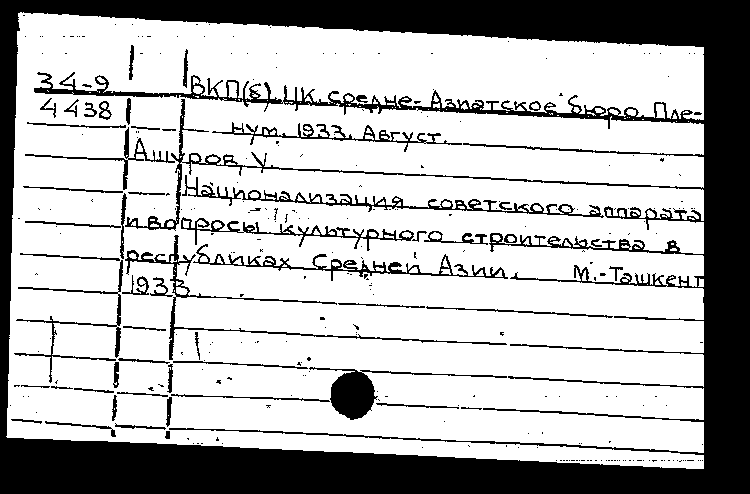 34-9 ВКП(б). ЦК. Средне-Азиатское бюро. Пле-
4438
нум. 1933. Август.
Ашуров, У.
Национализация советского аппарата
и вопросы культурного строительства в
республиках Средней Азии. М.-Ташкент
1933.